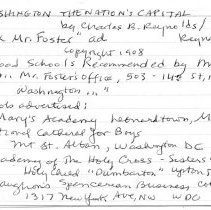 WASHINGTON THE NATION'S CAPITAL
by Charles B. Reynolds/
Mr. Foster" ad Reyno
Copyright 1908
ood Schools Recommended by M
Mr. Foster's Office, 503 - 14th St,
Washington ..."
ols advertised:
Mary's Academy Leonardtown, M
tional Cathedral for Boys
Mt St. Alban, Washington DC
cademy of The Holy Cross - Sisters
Holy Child "Dumbarton" upton S
aughon's Spencerian Business Co
1317 New York Ave, NW WDC